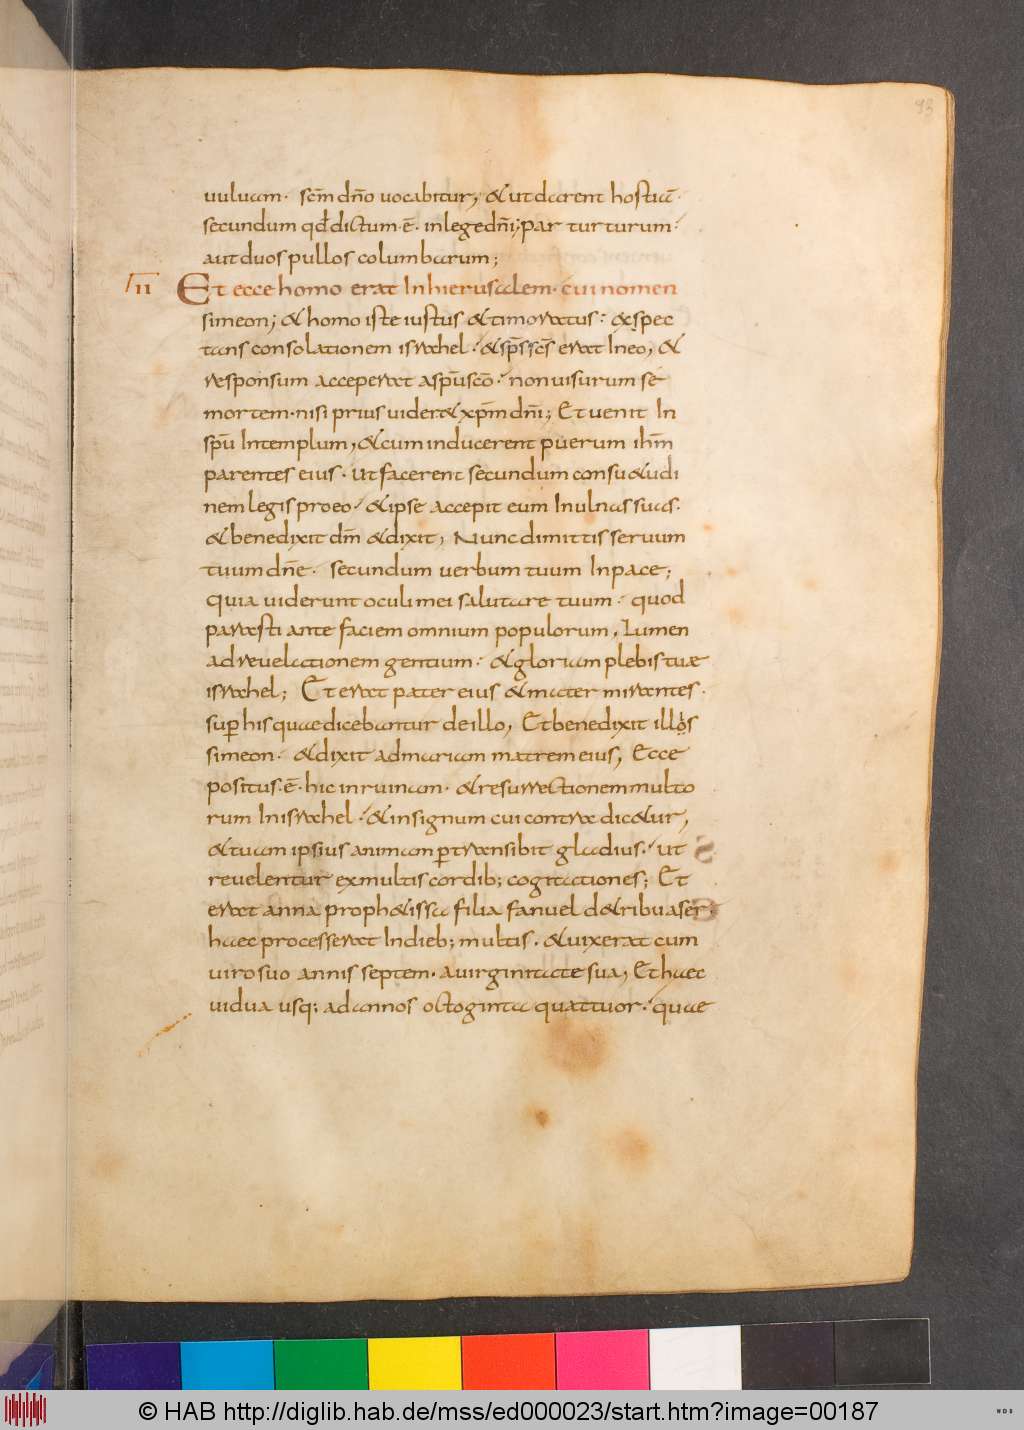 93
uuluam· scm̄ dn̄o uocabitur, & ut darent hostiā·
secundum qđ dictum ē· in lege dn̄i; par turturum·
aut duos pullos columbarum;
II Et ecce homo erat In hierusalem· cui nomen
simeon; & homo iste iustus & timoratus· & expec
tans consolationem israhel· & sp̄s sc̄s erat In eo, &
responsum acceperat a spū sc̄o· non uisurum se
mortem· nisi prius uider& xp̄m dn̄i; Et uenit In
spū In templum, & cum inducerent puerum ihm̄
parentes eius· ut facerent secundum consu&udi
nem legis pro eo· & ipse accepit eum In ulnas suas·
& benedixit dm̄ & dixit, Nunc dimittis seruum
tuum dn̄e· secundum uerbum tuum In pace;
quia uiderunt oculi mei salutare tuum· quod
parasti ante faciem omnium populorum, Lumen
ad reuelationem gentium· & gloriam plebis tuae
israhel; Et erat pater eius & mater mirantes·
sup̄ his quae dicebantur de illo, Et benedixit illos
simeon· & dixit ad mariam matrem eius, Ecce
positus· ē· hic in ruinam· & resurrectionem multo
rum In israhel· & in signum cui contradic&ur,
& tuam ipsius animam p̄transibit gladius· ut
reuelentur ex multis cordib; cogitationes; Et
erat anna proph&issa filia fanuel d& ribu aser·
haec processerat In dieb; multis· & uixerat cum
uiro suo annis septem· a uirginitate sua, Et haec
uidua usq; ad annos octoginta quattuor· quae
© HAB http://diglib.hab.de/mss/ed000023/start.htm?image=00187